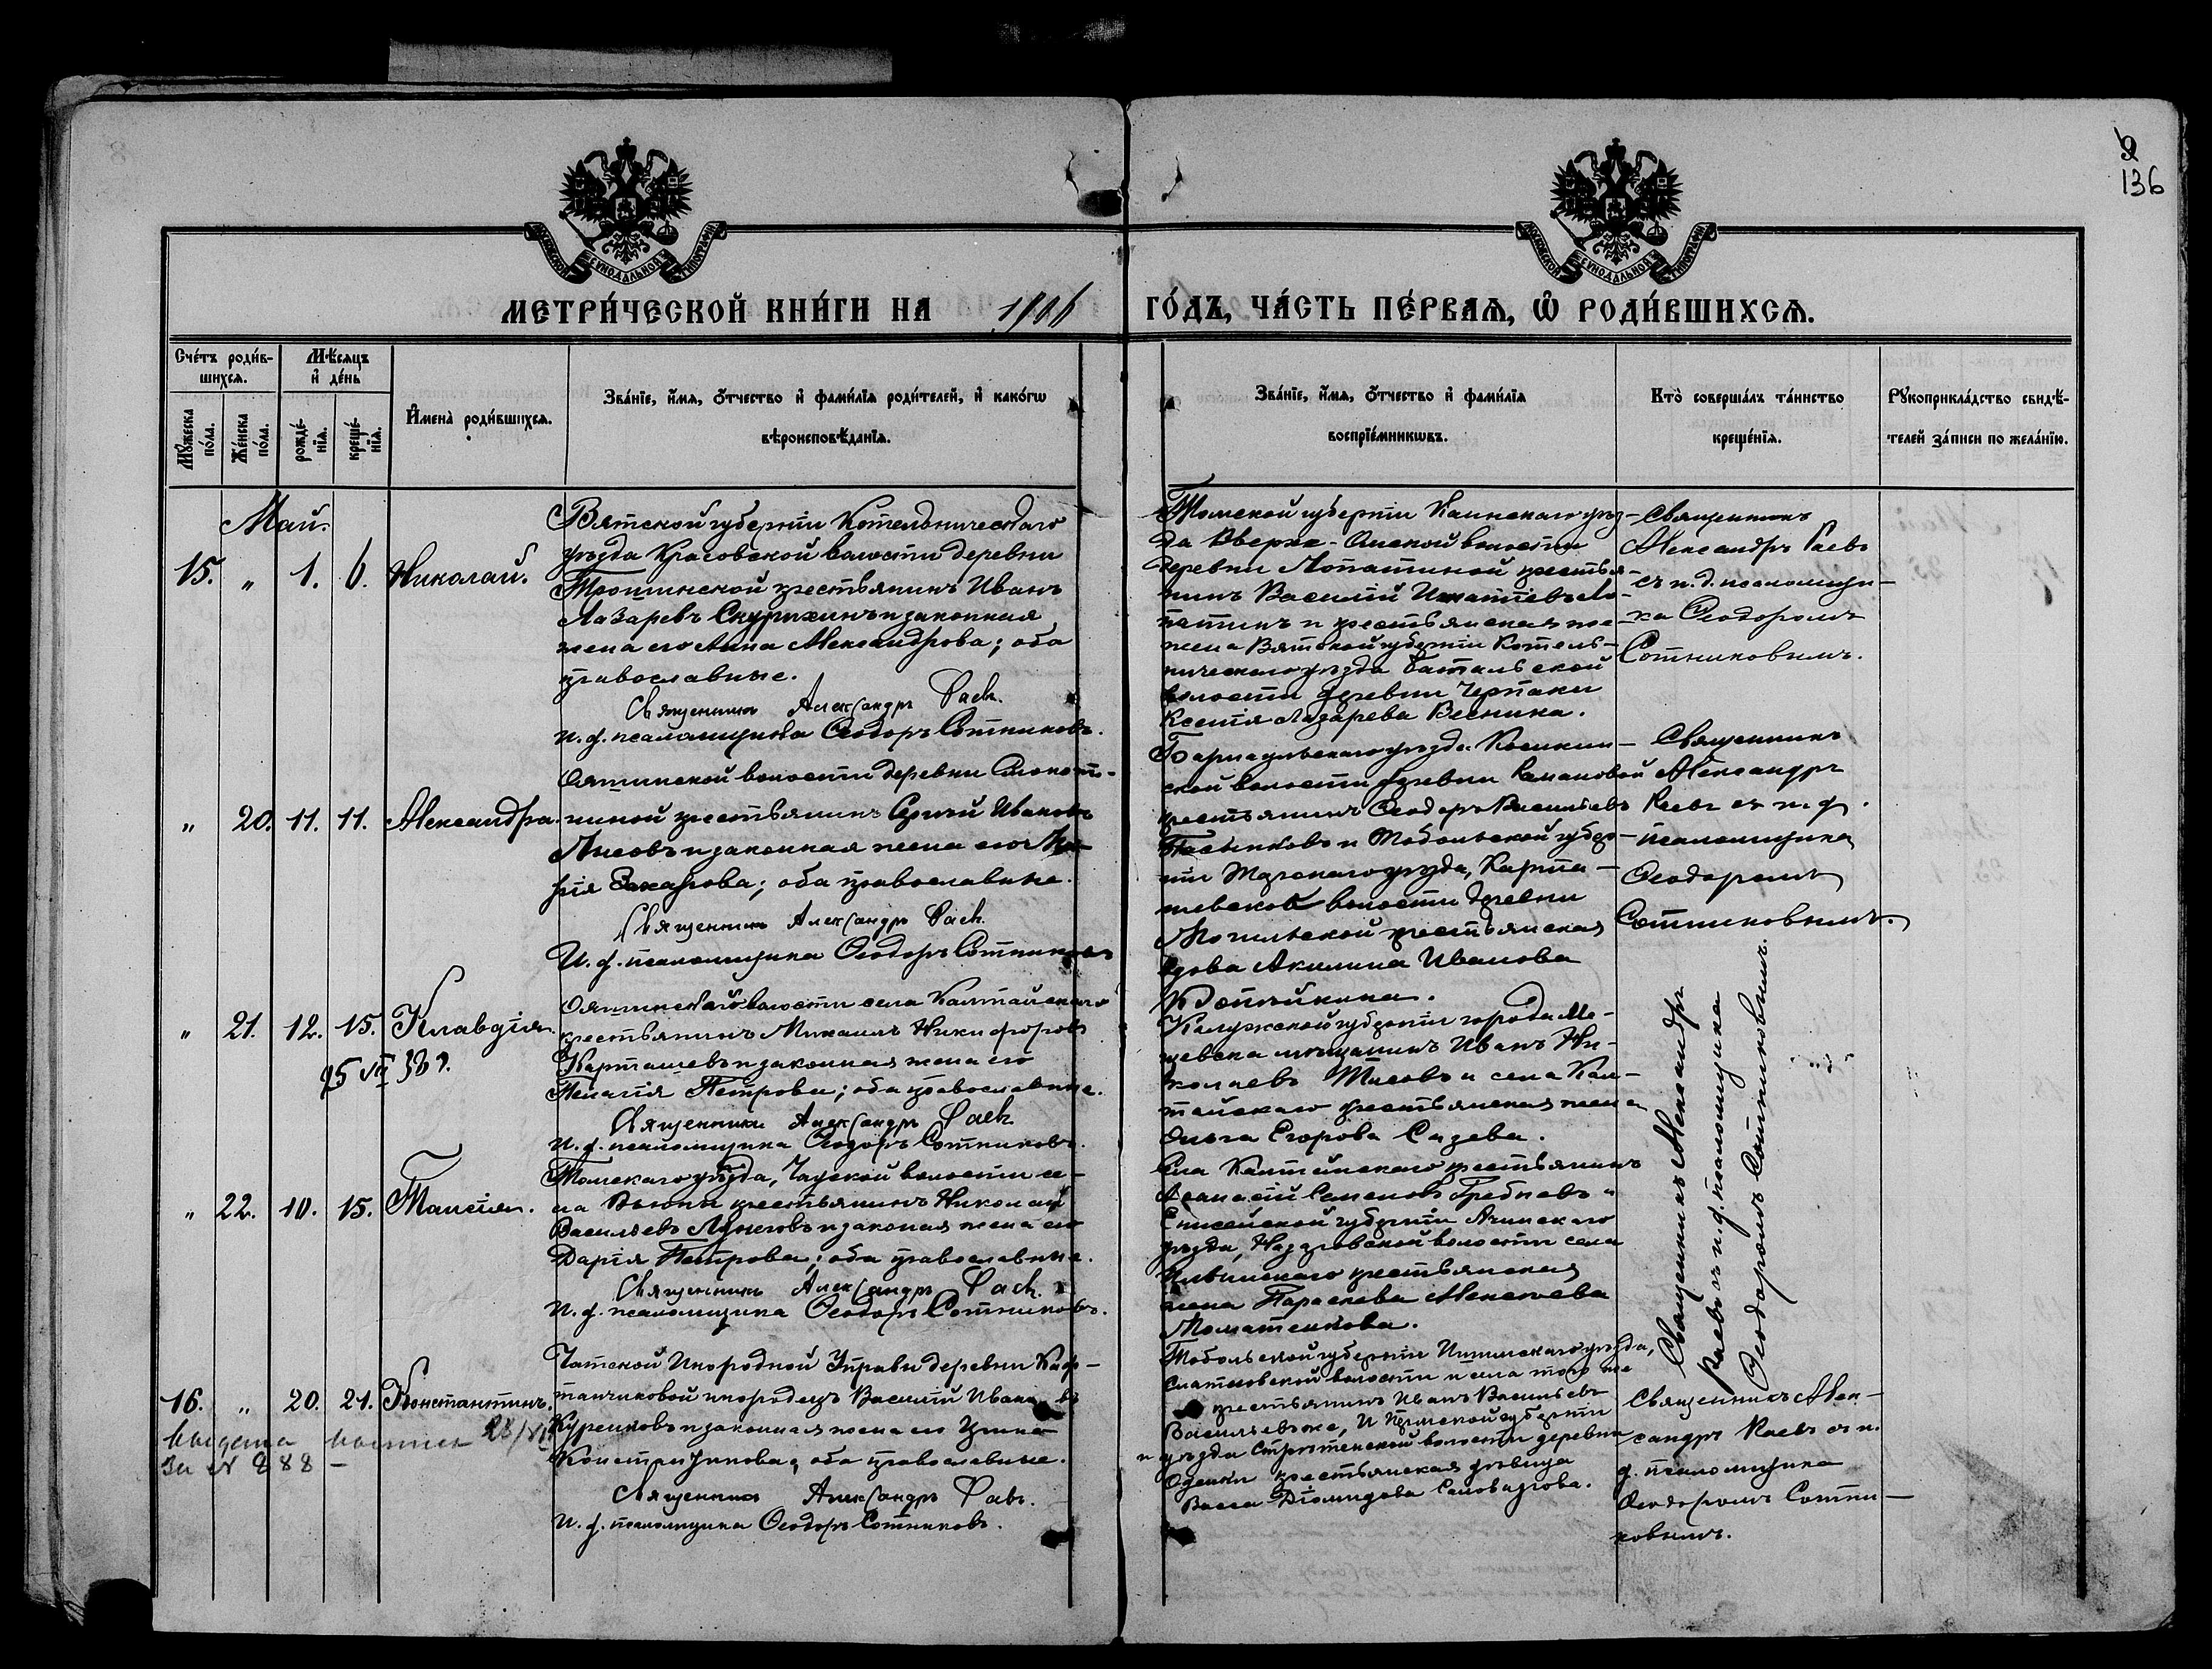 9
136
МОСКОВСКОЙ СѴНОДАЛЬНОЙ ТИПОГРАФІИ
МОСКОВСКОЙ СѴНОДАЛЬНОЙ ТИПОГРАФІИ
МЕТРИ́ЧЕСКОЙ КНИ́ГИ НА 1906
ГО́ДЪ, ЧА́СТЬ ПЕ́РВАѦ, Ѽ РОДИ́ВШИХСѦ.
Сче́тъ роди́в-
шихсѧ.
Мѣ́сѧцъ
и҆ де́нь
Мꙋжеска
по́ла.
Же́нска
по́ла.
рожде́-
нїѧ.
креще́-
нїѧ.
И҆мена̀ роди́вшихсѧ.
Зва́нїе, и҆́мѧ, ѻ҆́тчество и҆ фами́лїѧ роди́телей, и҆ како́гѡ
вѣроисповѣ́данїѧ.
Зва́нїе, и҆́мѧ, ѻ҆́тчество и҆ фами́лїѧ
воспрїе́мникѡвъ.
Кто̀ соверша́лъ та́инство
креще́нїѧ.
Рꙋкоприкла́дство свидѣ́-
телей за́писи по жела́нїю.
Май.
15. „ 1. 6. Николай.
Вятской губерніи Котельническаго
уѣзда Красовской волости деревни
Тропинской крестьянинъ Иванъ
Лазаревъ Скурихинъ и законная
жена его Анна Александрова; оба
православные.
Священникъ Александръ Раевъ.
И. д. псаломщика Ѳеодоръ Сотниковъ.
Томской губерніи Каинскаго уѣз-
да Верхне-Омской волости
деревни Лопатиной крестья-
нинъ Василій Игнатіевъ Ло-
патинъ и крестьянская же-
жена Вятской губерніи Котель-
ническаго уѣзда
волости деревни Черпаки
Ксенія Лазарева Веснина.
Священникъ
Александръ Раевъ
съ и. д. псаломщи-
ка Ѳеодоромъ
Сотниковымъ.
„ 20. 11. 11. Александра.
Ояшинской волости деревни
крестьянинъ Сергій Ивановъ
Лисовъ и законная жена его Ма-
рія Захарова; оба православные.
Священникъ Александръ Раевъ.
И. д. псаломщика Ѳеодоръ Сотниковъ
Барнаульскаго уѣзда
ской волости деревни Романовой
крестьянинъ Ѳеодоръ Васильевъ
и Тобольской губер-
ніи Тарскаго уѣзда, Карта-
шевской волости деревни
Могильской крестьянская
вдова Акилина Иванова
Священникъ
Александръ
Раевъ съ и. д.
псаломщика
Ѳеодоромъ
Сотниковымъ.
„ 21. 12. 15. Клавдія.
Ояшинской волости села Калтайскаго
крестьянинъ Михаилъ Никифоровъ
Карташевъ и законная жена его
Пелагія Петрова; оба православные.
Священникъ Александръ Раевъ
И. д. псаломщика Ѳеодоръ Сотниковъ.
Калужской губерніи города Ме-
щевска мѣщанинъ Иванъ Ни-
колаевъ и села Кал-
тайскаго крестьянская жена
Ольга Егорова Сизева.
Священникъ Александръ
Раевъ съ и. д. псаломщика
Ѳеодоромъ Сотниковымъ.
„ 22. 10. 15. Таисія.
Томскаго уѣзда, Чауской волости се-
ла Вьюны крестьянинъ Николай
Васильевъ и законная жена его
Дарія Петрова; оба православные.
Священникъ Александръ Раевъ.
И. д. псаломщика Ѳеодоръ Сотниковъ.
Села Калтайскаго крестьянинъ
Аѳанасій Семеновъ Гребневъ и
Енисейской губерніи Ачинскаго
уѣзда, Назаровской волости села
крестьянская
жена Параскева Алексѣева
16. „ 20. 21. Константинъ.
выдана выпись
за № 888 —
Чатской Инородной Управы деревни
инородецъ Василій Ивановъ
и законная жена его Ирина
оба православные.
Священникъ Александръ Раевъ.
И. д. псаломщика Ѳеодоръ Сотниковъ.
Тобольской губерніи Ишимскаго уѣзда,
волости и села того же
крестьянинъ Иванъ Васильевъ
и Пермской губерніи
и уѣзда Стрѣтенской волости деревни
крестьянская дѣвица
Васса Діомидова Самоварова.
Священникъ Алек-
сандръ Раевъ съ и.
д. псаломщика
Ѳеодоромъ Сотни-
ковымъ.